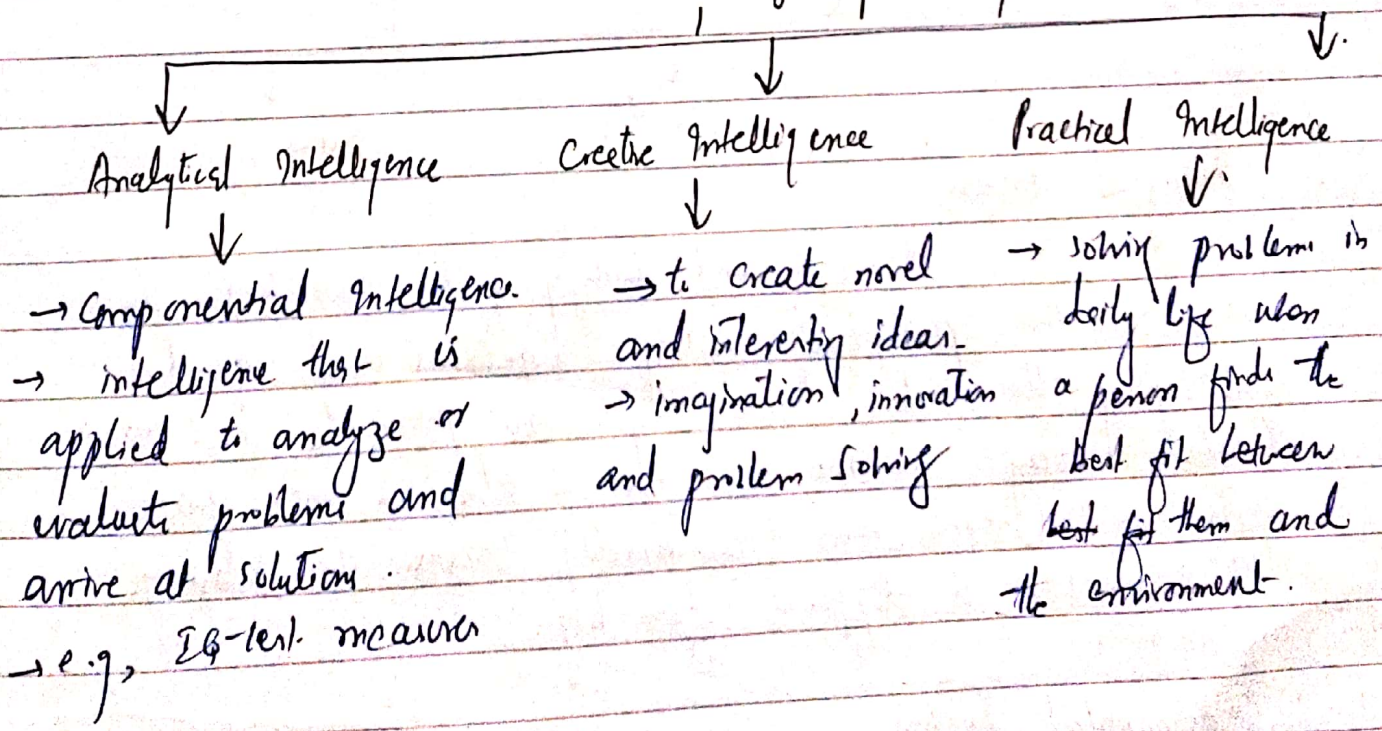 Analytical Intelligence
→ Componential Intelligence.
→ intelligence that is
applied to analyze or
evaluate problems and
arrive at solutions.
→ e.g., IQ-test measures
Creative Intelligence
→ to create novel
and interesting ideas.
→ imagination, innovation
and problem solving
Practical Intelligence
→ solving problems in
daily life when
a person finds the
best fit between
best fit them and
the environment.